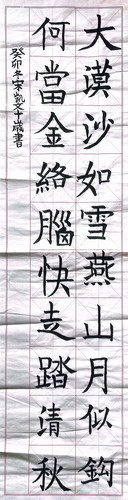 大漠沙如雪燕山月似鈎
何當金絡腦快走踏清秋
癸卯冬宋凱文十山歲書